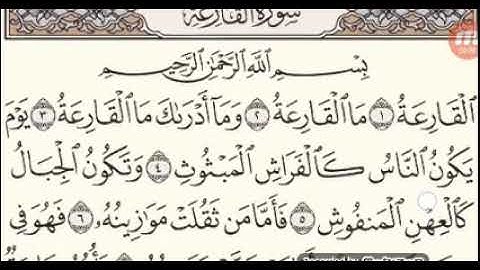 سُورَةُ القَارِعَةِ
بِسْمِ اللَّهِ الرَّحْمَٰنِ الرَّحِيمِ
الْقَارِعَةُ ١ مَا الْقَارِعَةُ ٢ وَمَا أَدْرَىٰكَ مَا الْقَارِعَةُ ٣ يَوْمَ
يَكُونُ النَّاسُ كَالْفَرَاشِ الْمَبْثُوثِ ٤ وَتَكُونُ الْجِبَالُ
كَالْعِهْنِ الْمَنفُوشِ ٥ فَأَمَّا مَن ثَقُلَتْ مَوَازِينُهُۥ ٦ فَهُوَ فِي